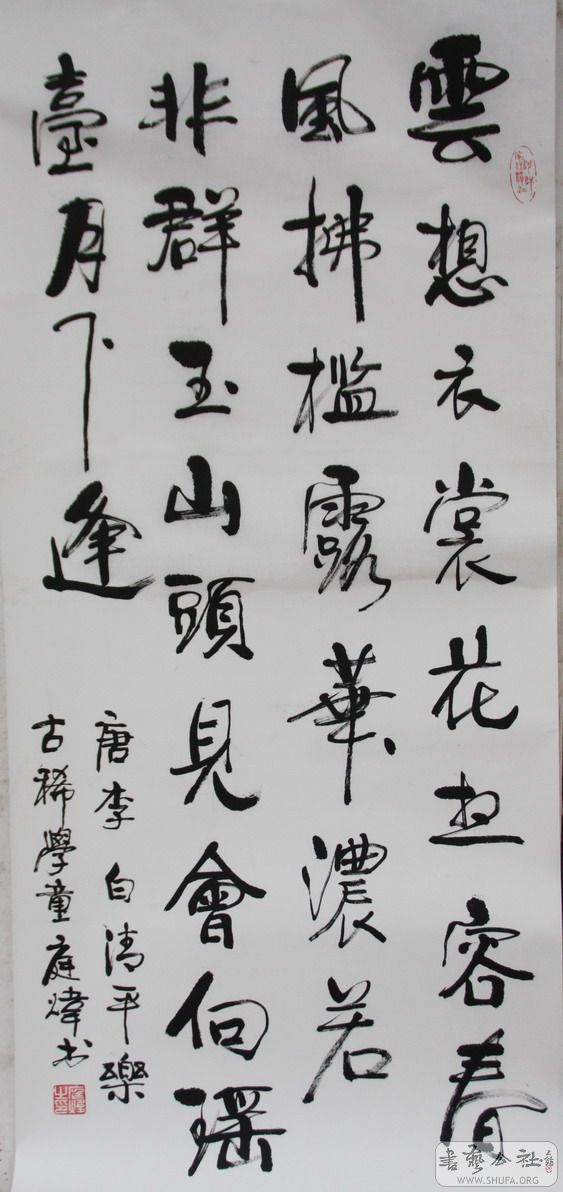 雲想衣裳花想容春
風拂檻露華濃若
非群玉山頭見會向瑶
臺月下逢
唐李白清平樂
古稀學童庭煒书
書藝公社
WWW.SHUFA.ORG